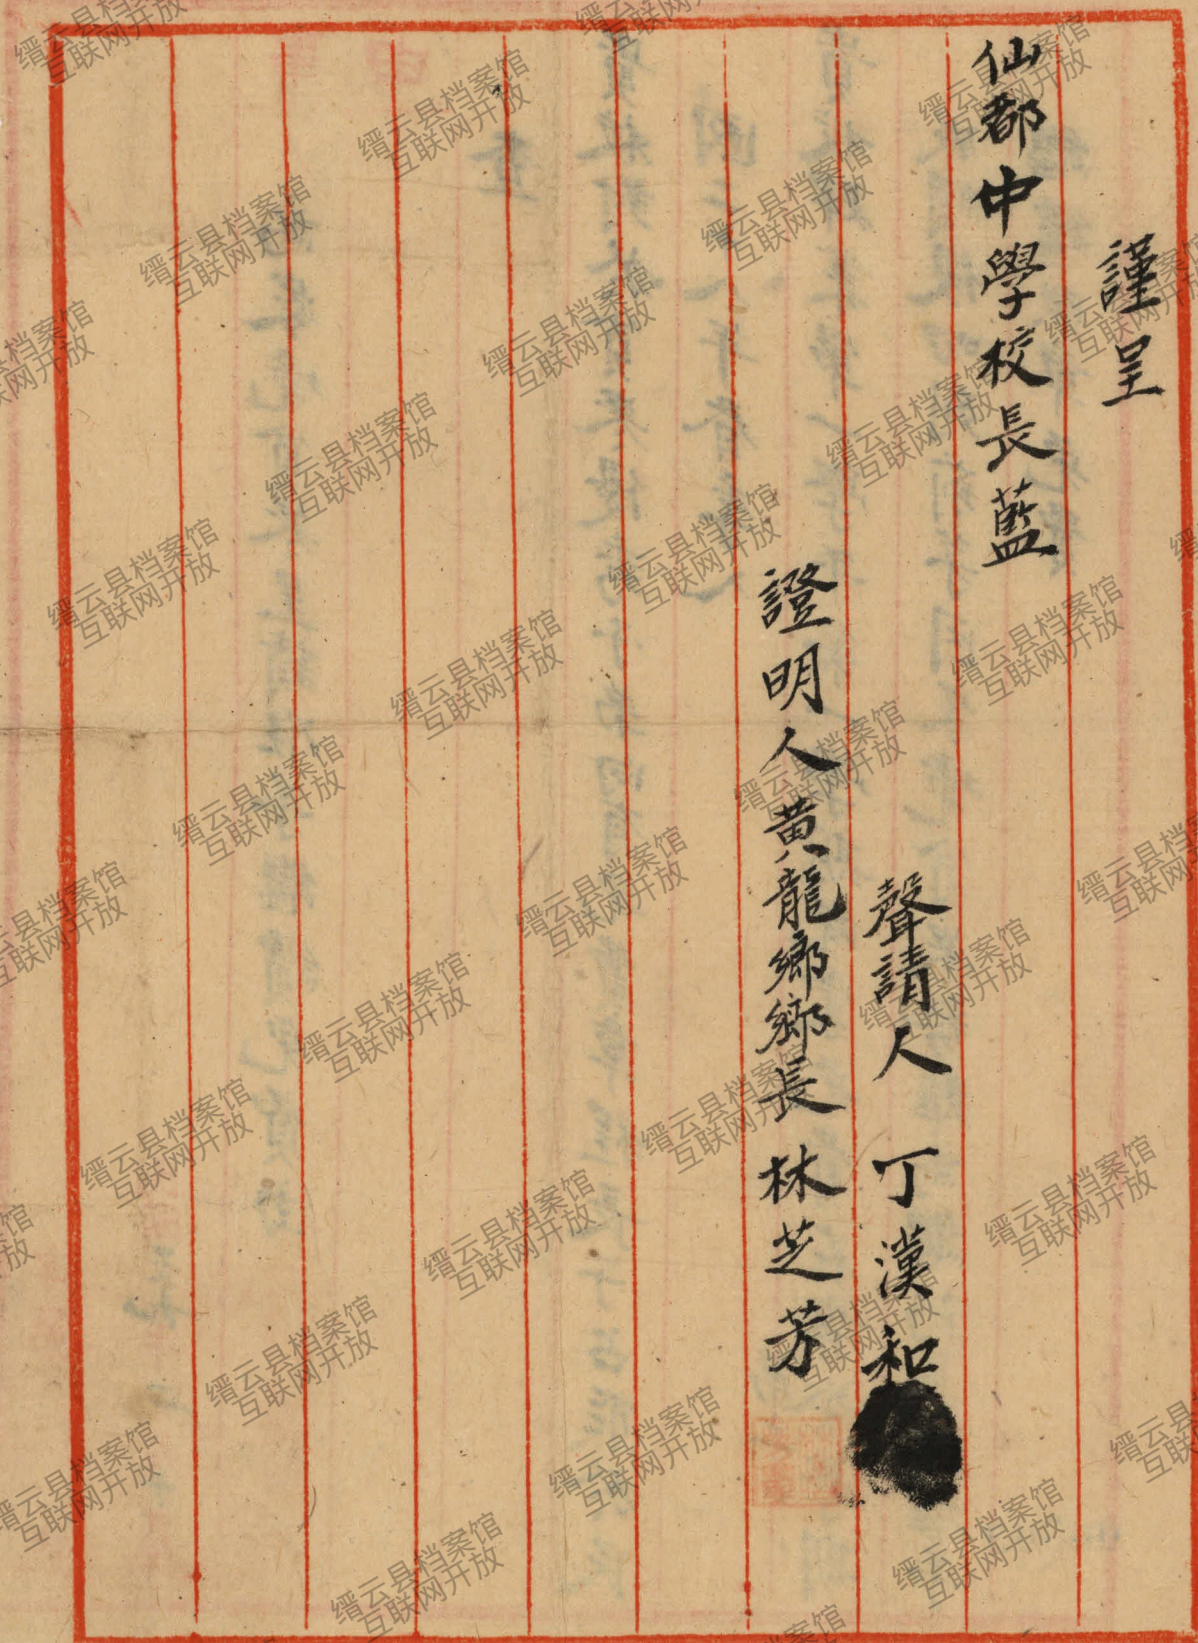 謹呈
仙都中學校長藍
聲請人 丁漢和
證明人黄龍鄉鄉長 林芝芳
缙云县档案馆
互联网开放